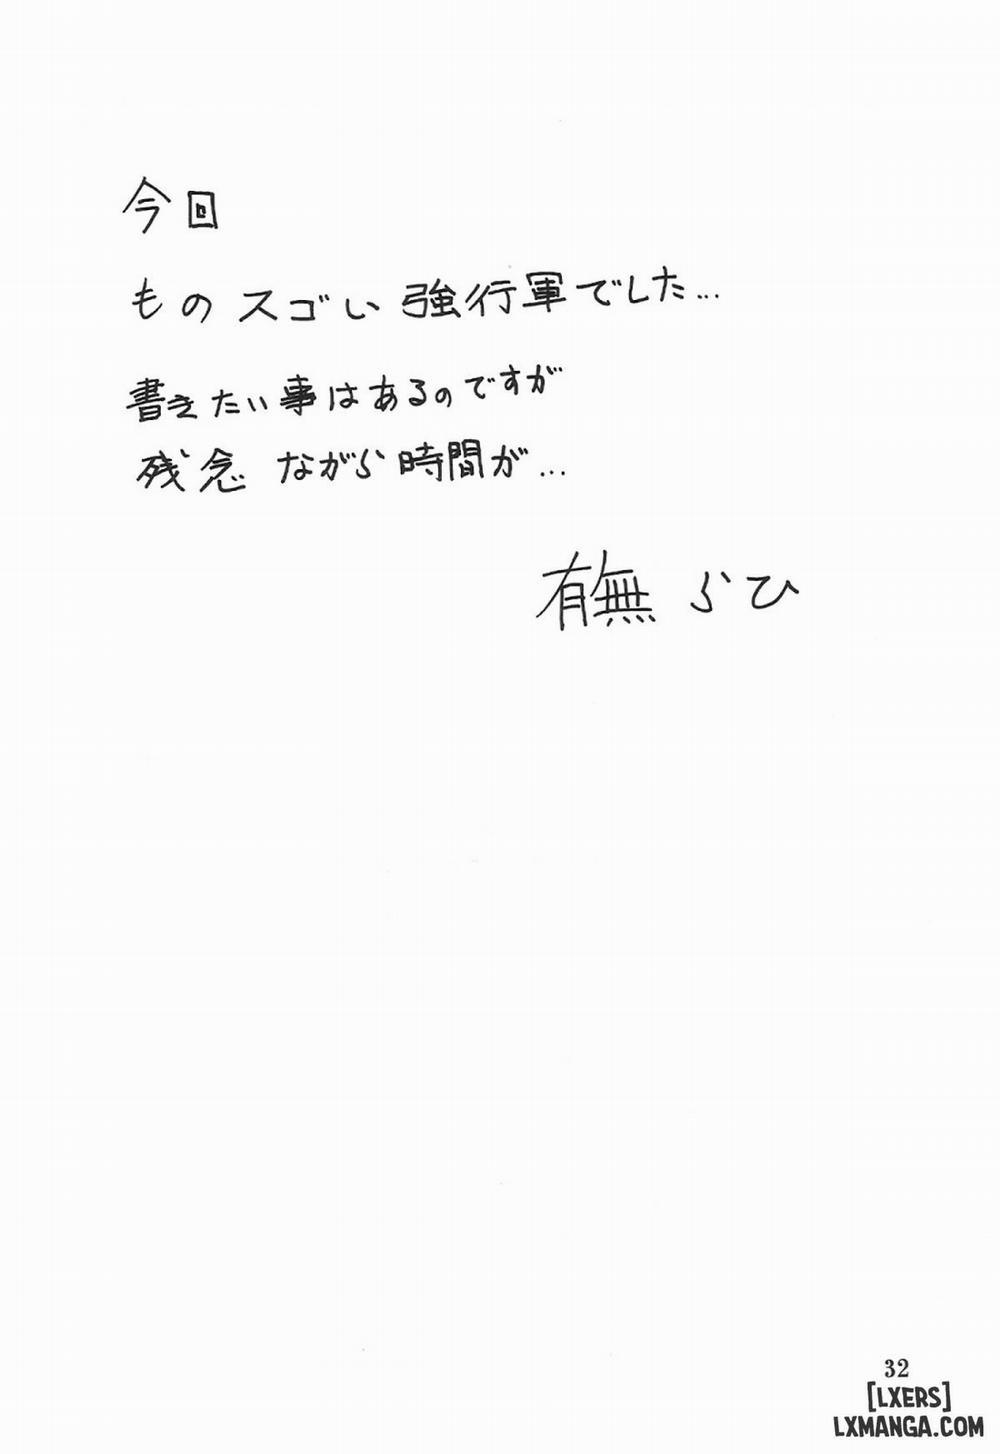 今回
ものスゴい強行軍でした...
書きたい事はあるのですが
残念ながら時間が...
有無らひ
32
[LXERS]
LXMANGA.COM